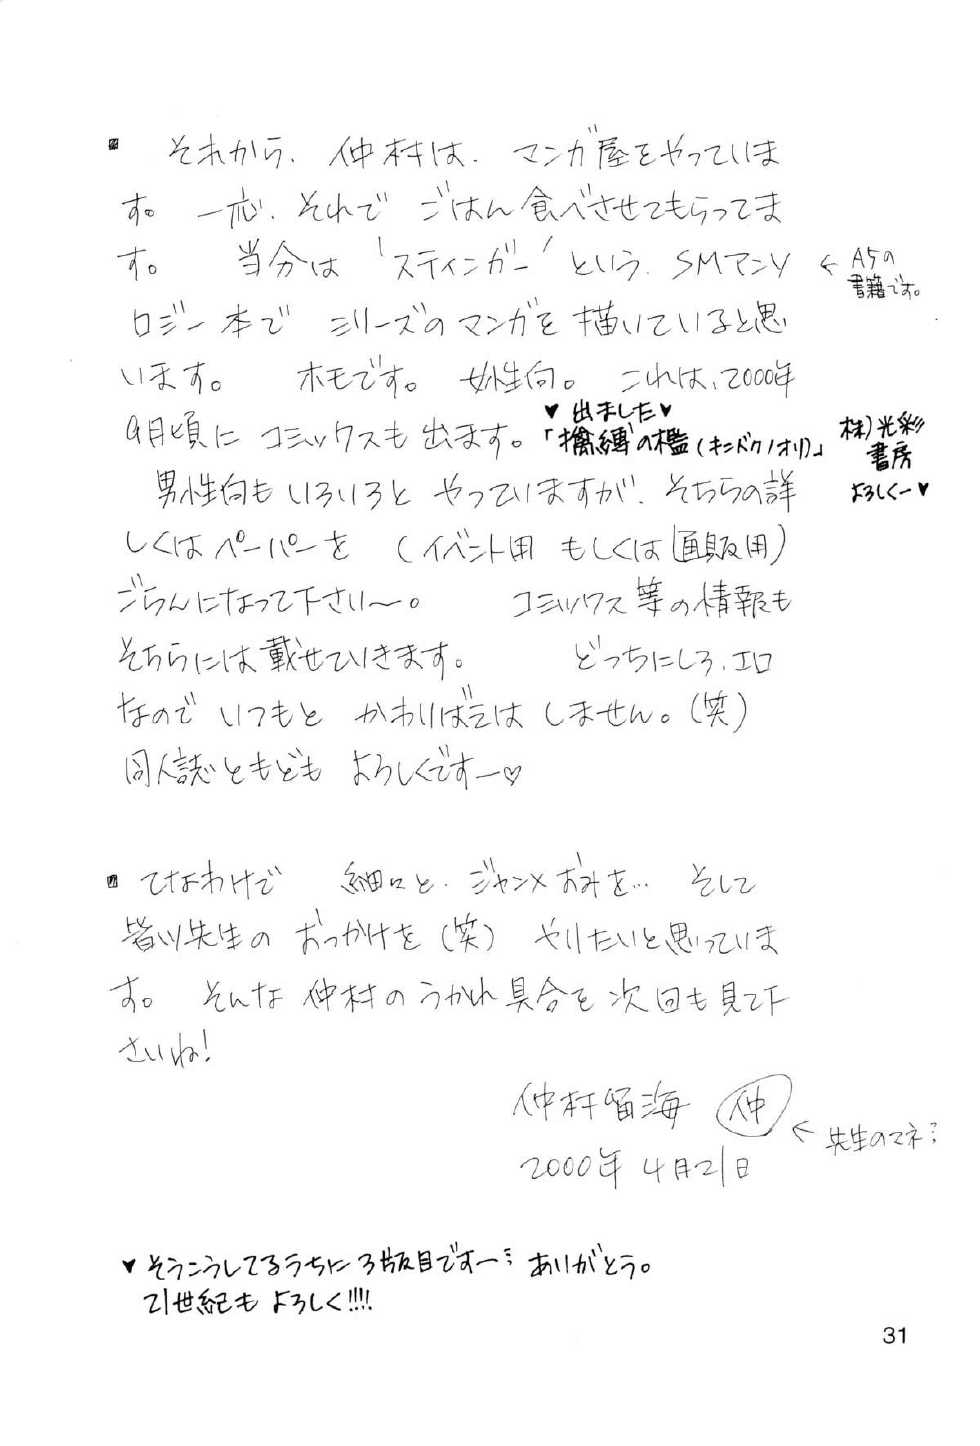 それから、仲村は、マンガ屋をやっていま
す。一応、それでごはん食べさせてもらってま
す。当分は'スティンガー'という、SMアンソ
ロジー本でシリーズのマンガを描いていると思
います。ホモです。女性向。これは、2000年
9月頃にコミックスも出ます。
← A5の
書籍です。
♥出ました♥
「擒縛の檻(キンバクノオリ)」
株)光彩
書房
よろしくー♥
男性向もいろいろとやっていますが、そちらの詳
しくはペーパーを(イベント用もしくは通販用)
ごらんになって下さい〜。コミックス等の情報も
そちらには載せていきます。どっちにしろ、エロ
なのでいつもとかわりばえはしません。(笑)
同人誌ともどもよろしくですー♡
てなわけで細々と、ジャン×おみを…そして
皆川先生のおっかけを(笑)やりたいと思っていま
す。そんな仲村のうかれ具合を次回も見て下
さいね!
仲村留海 仲
← 先生のマネ…
2000年4月21日
♥そうこうしてるうちに3版目ですー…ありがとう。
21世紀もよろしく!!!!
31